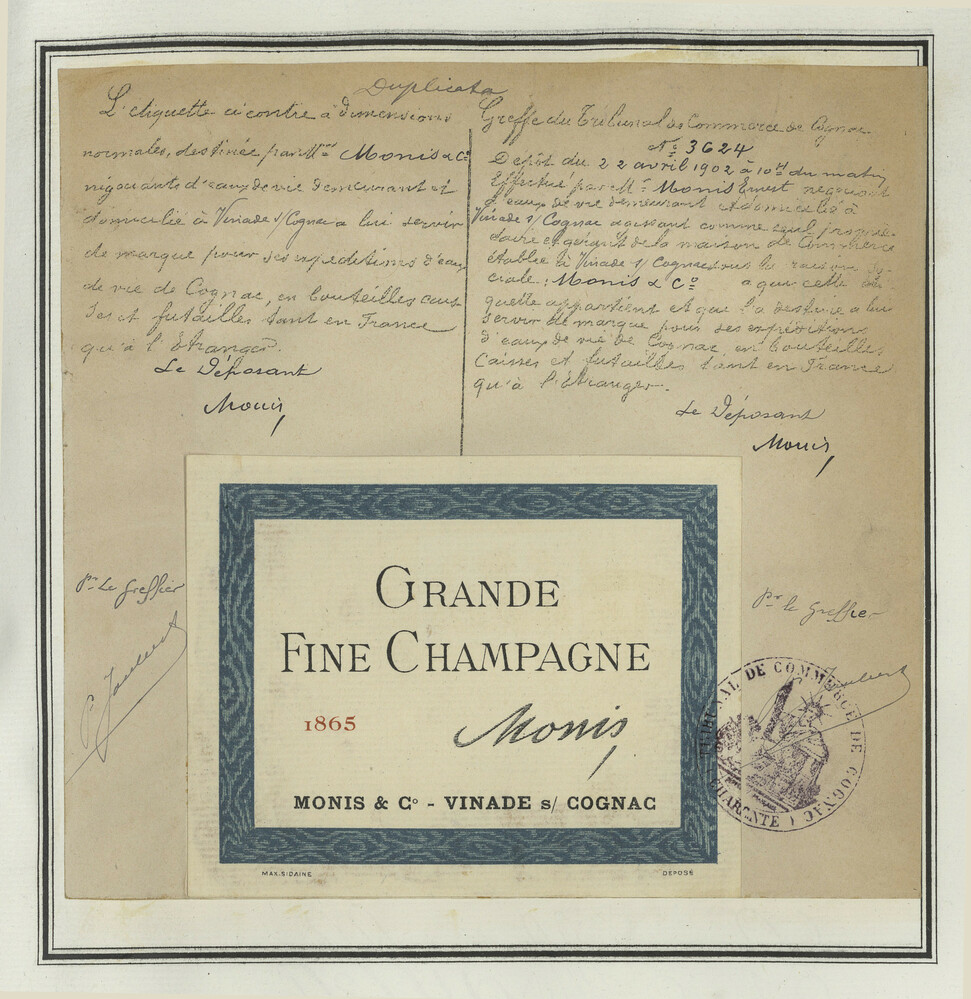 Duplicata
L'étiquette ci contre à dimensions
normales, destinée par Mrs Monis & Co
négociants d'eaux de vie demeurant et
domicilié à Vinade s/ Cognac a lui servir
de marque pour ses expéditions d'eaux
de vie de Cognac, en bouteilles cais
ses et futailles tant en France
qu'à l'Etranger.
Le Déposant
Monis
Pr Le Greffier
Greffe du Tribunal de Commerce de Cognac
No 3624
Dépôt du 22 avril 1902 à 10H du matin
Effectué par Mr Monis Ernest négociant
d'eaux de vie demeurant et domicilié à
Vinade s/ Cognac agissant comme seul proprié
taire et gérant de la maison de Commerce
établie à Vinade s/ Cognac sous la raison so
ciale: Monis & Co a qui cette éti
quette appartient et qui l'a destine a lui
servir de marque pour ses expéditions
d'eaux de vie de Cognac, en bouteilles,
caisses et futailles tant en France
qu'à l'étranger.
Le Déposant
Monis
Pr le Greffier
TRIBUNAL DE COMMERCE DE COGNAC
(CHARENTE)
GRANDE
FINE CHAMPAGNE
1865
Monis
MONIS & Co - VINADE s/ COGNAC
MAX.SIDAINE
DEPOSÉ